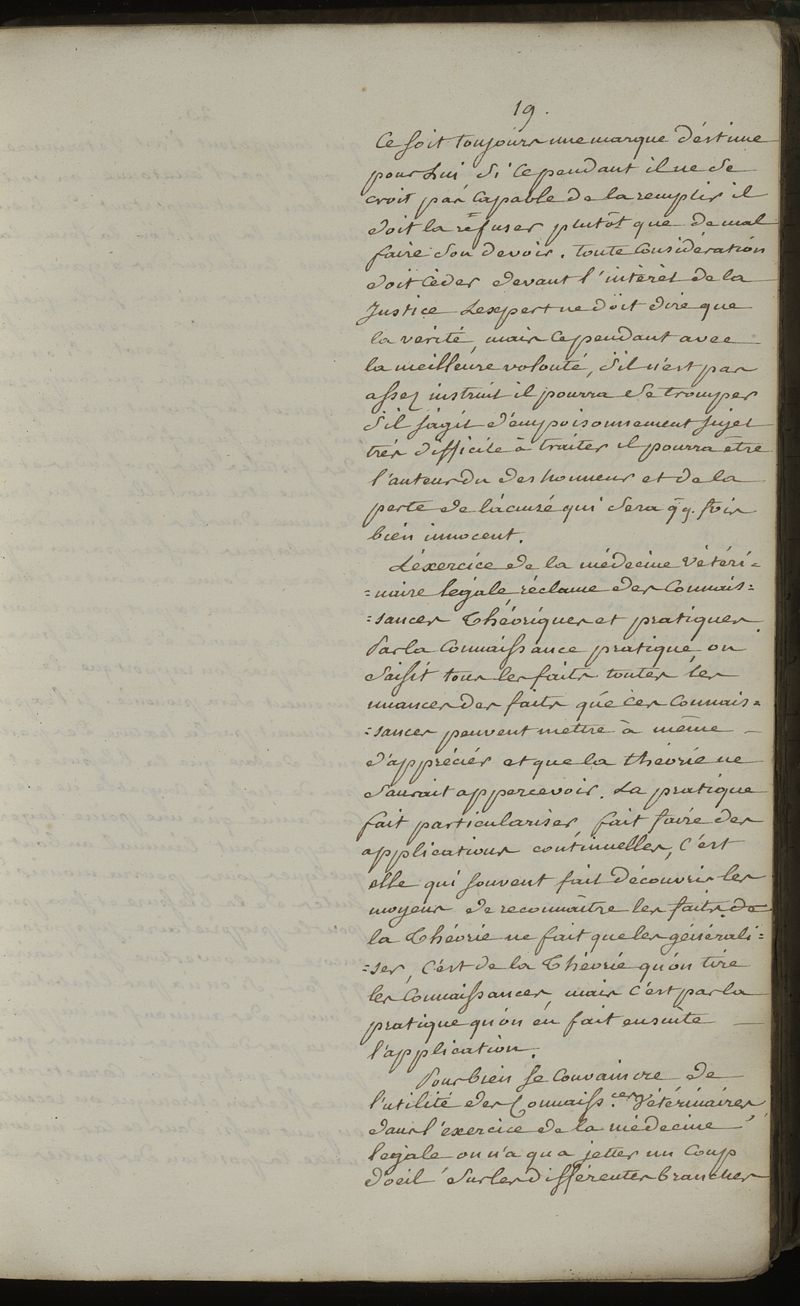 19.
Ce soit toujours une marque d'éstime
pour Lui Si Cependant il ne se
croit pas Capable de la remplir il
doit la réfuser plutôt que de mal
faire son devoir. toute Considération
doit Cèder devant l'intèrèt de la
Justice L'expert ne doit dire que
la vérité, mais Cependant avec
la meilleure volonté, s'il n'est pas
assez instruit il pourra se tromper
s'il s'agit d'empoisonnement sujet
très difficile à traiter il pourra être
l'auteur du deshonneur et de la
perte de l'acusé qui sera qq. fois
bien innocent.
L'éxercice de la médecine Vétéri-
=naire legale réclame des Connais=
=sances Théoriques et pratiques
Par la Connaissance pratique on
saisit tous les faits toutes les
nuances des faits que ces Connais=
=sances peuvent mettre à même
d'apprécier et que la théorie ne
saurait appercevoir. La pratique
fait particulariser, fait faire des
applications continuelles, C'est
elle qui souvent fait découvrir les
moyens de reconnaître les faits. de
la Théorie ne fait que les générali=
=ser, C'est de la Théorie qu'on tire
les Connaissances, mais C'est par la
pratique qu'on en fait ensuite
l'application.
Pour bien se Convaincre de
l'utilité des Connaiss.ces Vétérinaires
dans l'exercice de la médecine
legale on n'a qu'a jetter un Coup
d'oeil Sur les différentes branches